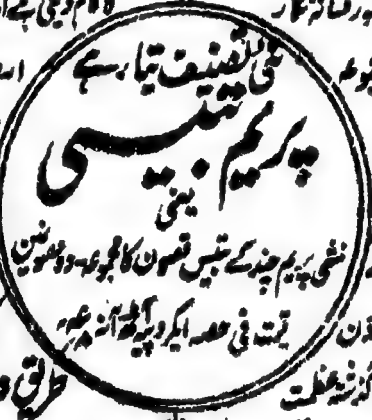 نئی تصنیف تیار ہے
پریم بتیسی
یعنی
منشی پریم چند کے بتیس قصون کا مجموعہ دو حصوں مین
قیمت فی حصہ ایکروپیہ آٹھ آنہ